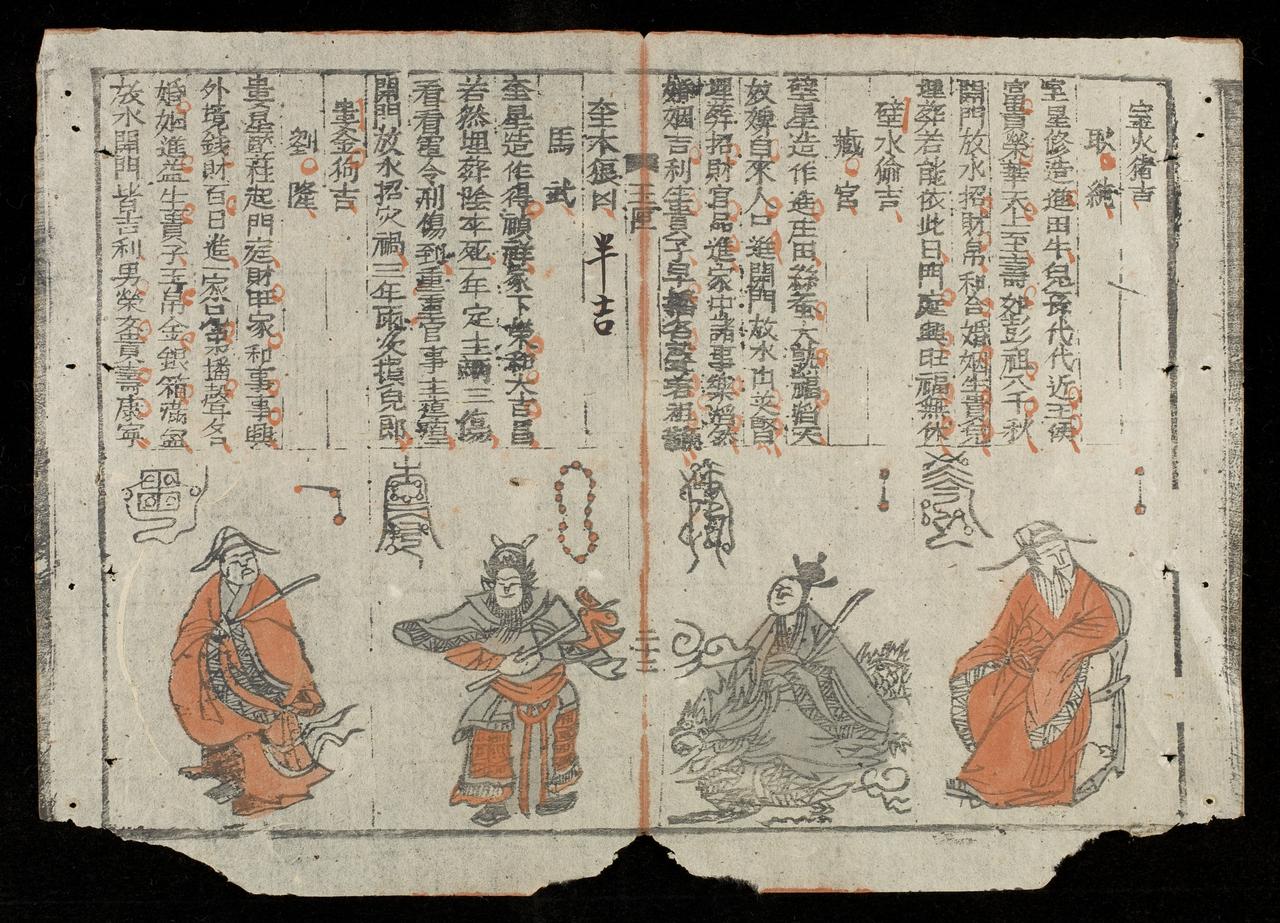 室火猪吉
耿純
室星修造進田牛兒孫代代近王侯
富貴榮華天上至壽如彭祖八千秋
開門放水招財帛和合婚姻生貴兒
埋葬若能依此日門庭興旺福無休
壁水偷吉
藏宮
壁星造作進庄田絲蚕大熟福滔天
奴婢自來人口進開門放水出英賢
埋葬招財官品進家中諸事樂滔然
婚姻吉利生貴子早播名聲著祖鞭
二十三
奎木狼凶 半吉
馬武
奎星造作得禎祥家下榮和大吉昌
若然埋葬陰卒死一年定主兩三傷
看看運令刑傷到重重官事主瘟
開門放水招灾禍三年兩次損兒郎
婁金狗吉
劉隆
婁星竪柱起門庭財旺家和事事興
外境錢財百日進一家兄弟播聲名
婚姻進益生貴子玉帛金銀箱滿盈
放水開門皆吉利男榮女貴壽康寧